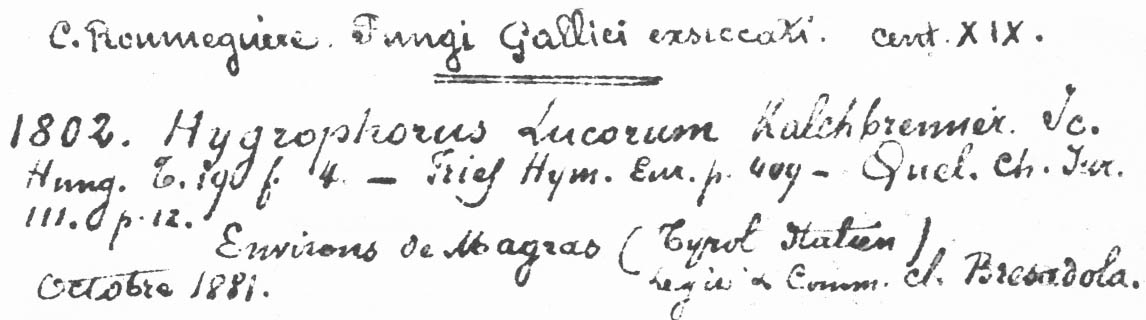 C. Roumeguere. Fungi Gallici exsiccati. cent. XIX.
1802. Hygrophorus Lucorum Kalchbrenner. Ic.
Hung. T. 19 f. 4. — Fries Hym. Eur. p. 409 – Quel. Ch. Jur.
III. p. 12.
Environs de Magras (Tyrol Italien)
Octobre 1881.
Legit & Comm. cl. Bresadola.